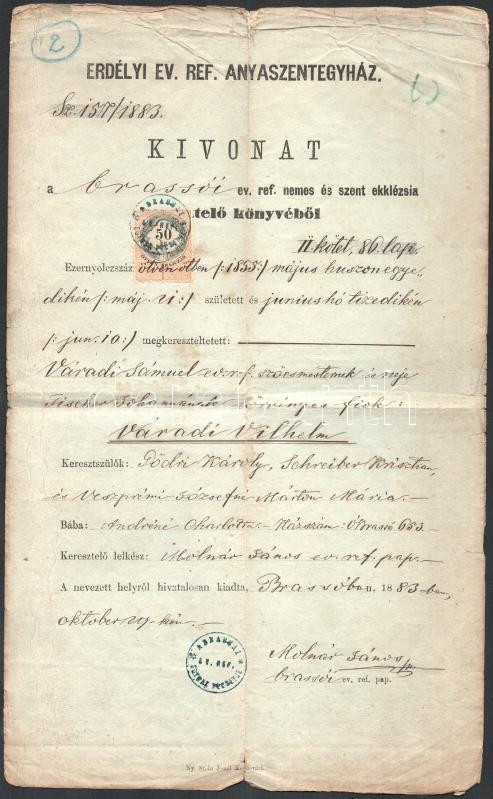 2
ERDÉLYI EV. REF. ANYASZENTEGYHÁZ.
Sz. 157/1883.
KIVONAT
a brassói ev. ref. nemes és szent ekklézsia
telő könyvéből
50
II kötet, 86 lap.
Ezernyolczszáz ötvenötben /: 1855 :/ május huszonegye,
dikén /: máj. 21 :/ született és junius hó tizedikén
/: jun. 10 :/ megkereszteltetett:
Váradi Sámuel ev. ref. szőcsmesternek és neje
Fischer Johannának törvényes fiok:
Váradi Vilhelm
Keresztszülők: Pödri Károly, Schreiber Krisztian,
és Veszprémi Józsefné Márton Mária.
Bába: Andréné Charlotta. Házszám: Ó Brassó 653.
Keresztelő lelkész: Molnár János ev. ref. pap.
A nevezett helyről hivatalosan kiadta, Brassóban, 1883-ban,
oktober 29-kén.
Molnár János
brassói ev. ref. pap.
A BRASSAI
EV. REF.